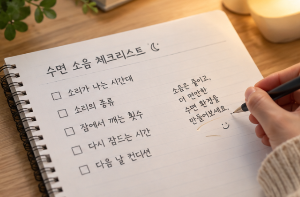 수면 소음 체크리스트
소리가 나는 시간대
소리의 종류
잠에서 깨는 횟수
다시 잠드는 시간
다음 날 컨디션
소음은 줄이고,
더 편안한
수면 환경을
만들어보세요.